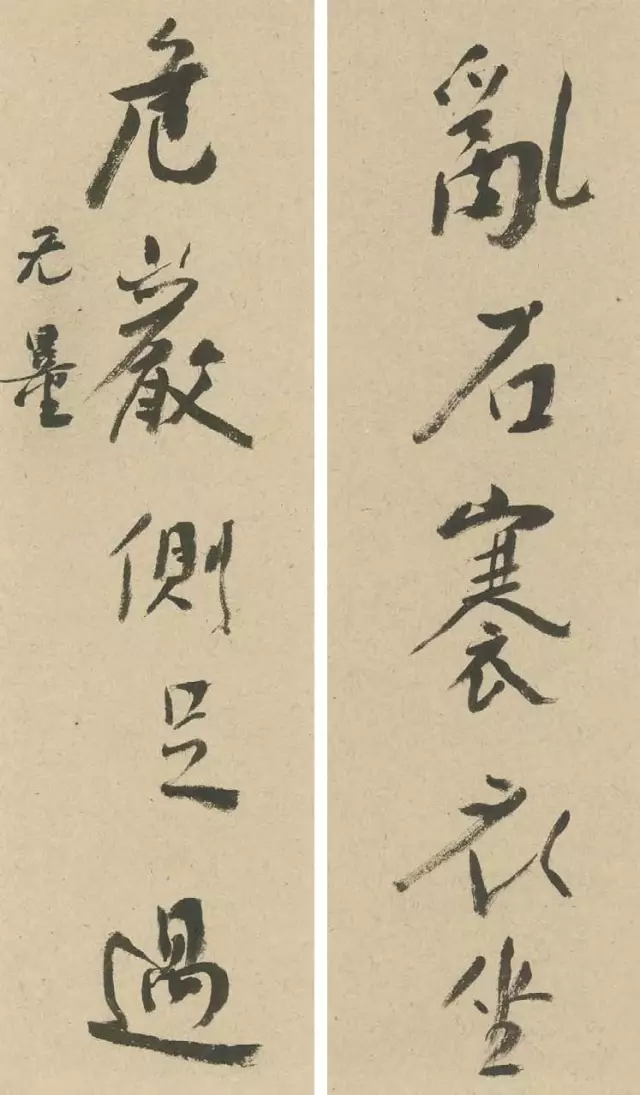 亂石褰衣坐
危嚴側足過
无量